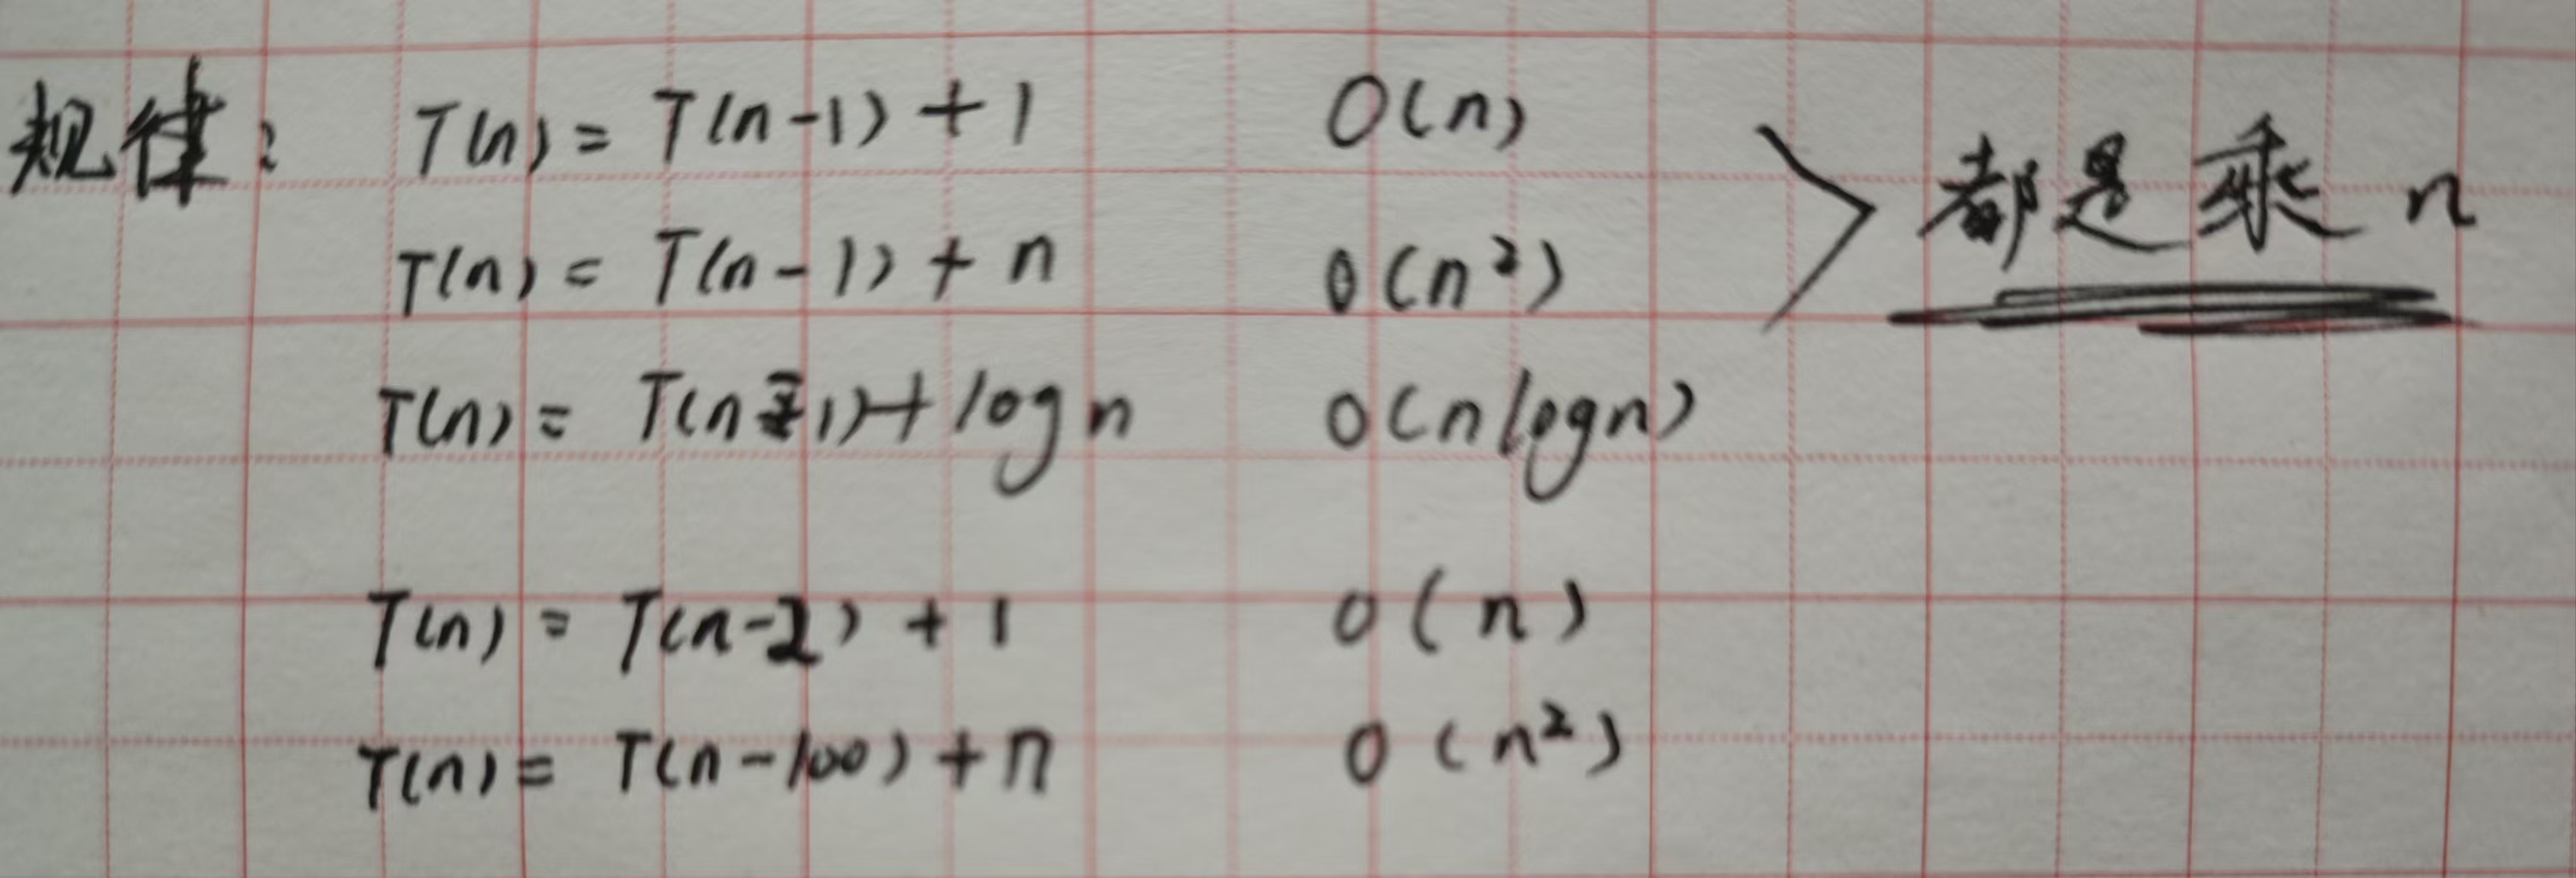 规律: T(n) = T(n-1) + 1 O(n)
T(n) = T(n-1) + n O(n²)
都是乘 n
T(n) = T(n-1) + log n O(n log n)
T(n) = T(n-2) + 1 O(n)
T(n) = T(n-100) + n O(n²)